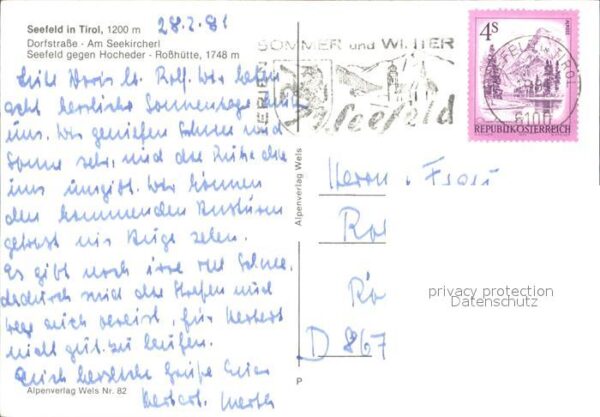 Seefeld in Tirol, 1200 m
28.2.81
Dorfstraße - Am Seekircherl
Seefeld gegen Hocheder - Roßhütte, 1748 m
FERIEN
SOMMER und WINTER
Seefeld
SEEFELD IN TIROL
6100
4S
REPUBLIK ÖSTERREICH
Doris Rolf. Wir haben
herrliche Sonnentage
uns. Wir genießen Schnee und
Sonne sehr, und die Ruhe die
uns umgibt. Wir können
den kommenden Ansturm
getrost ins Auge sehen.
Es gibt noch irre viel Schnee,
dadurch sind die Straßen und
Wege auch vereist, für Herbert
nicht gut zu laufen.
Euch herzliche Grüße Eure
Herbert
Alpenverlag Wels Nr. 82
Alpenverlag Wels
P
Herrn u. Frau
Ro
D 867
privacy protection
Datenschutz